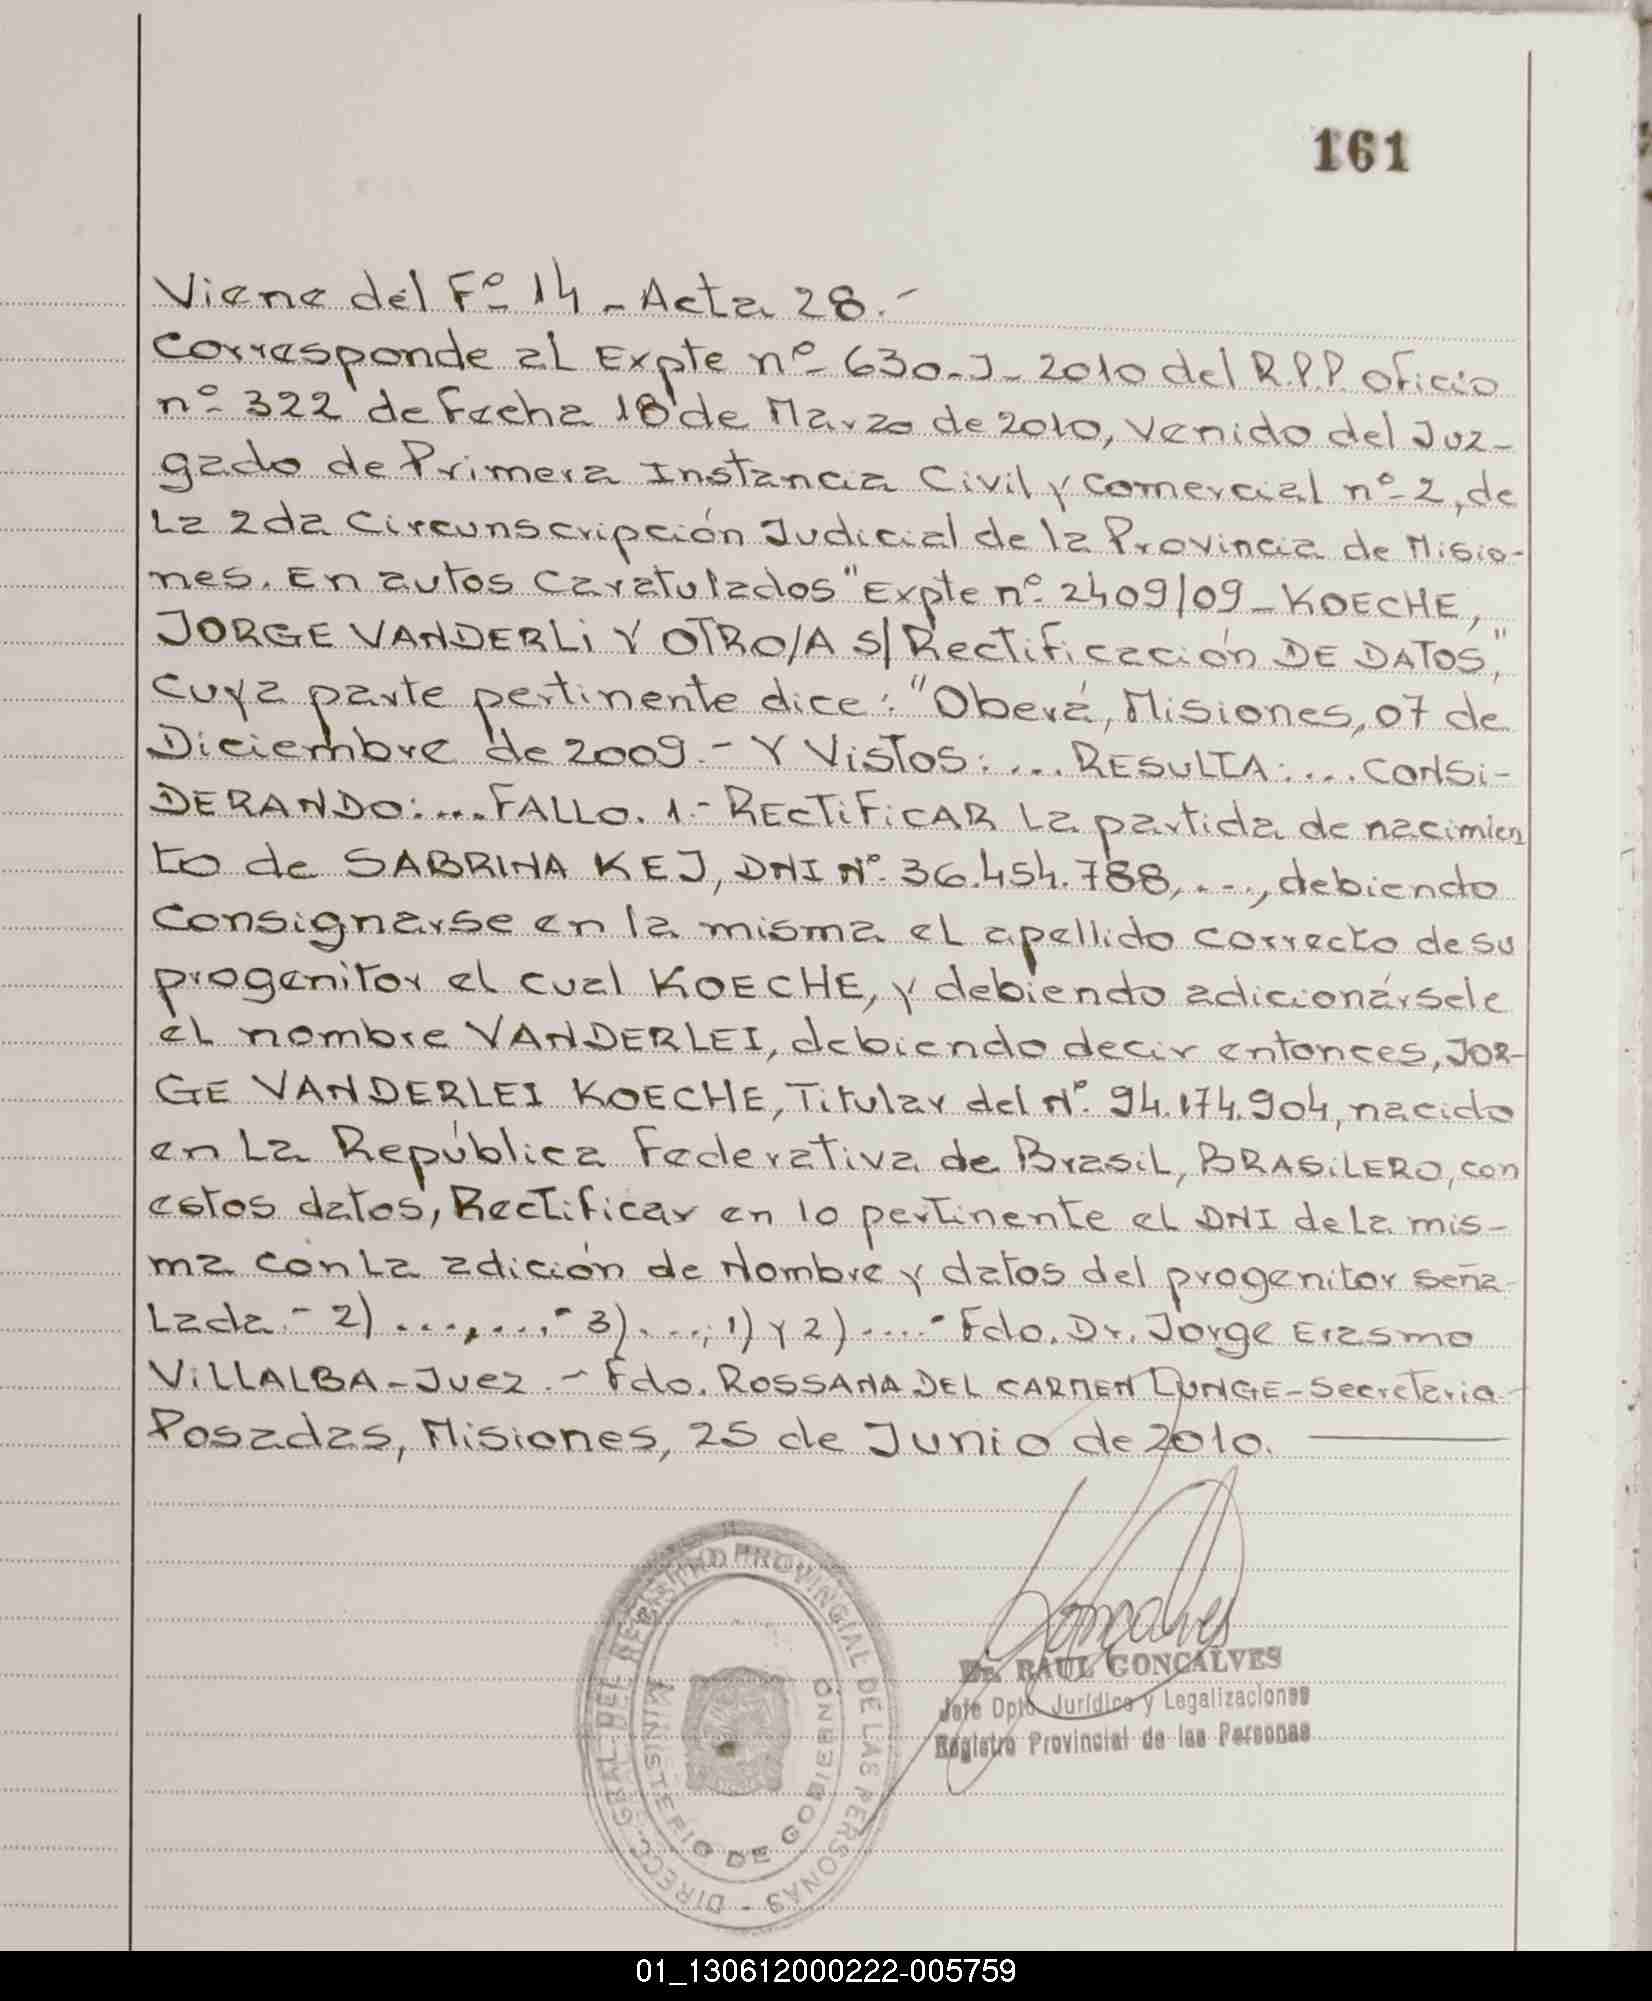 161
Viene del Fº 14 - Acta 28.-
Corresponde al Expte nº 630-J-2010 del R.P.P. oficio
nº 322 de fecha 18 de Marzo de 2010, venido del Juz-
gado de Primera Instancia Civil y Comercial nº 2, de
La 2da Circunscripción Judicial de la Provincia de Misio-
nes. En autos caratulados "Expte nº 2409/09 - KOECHE,
JORGE VANDERLI Y OTRO/A S/ Rectificación DE DATOS,"
cuya parte pertinente dice: "Oberá, Misiones, 07 de
Diciembre de 2009.- Y Vistos: ... RESULTA: .... CONSI-
DERANDO: .... FALLO. 1.- RECTIFICAR La partida de nacimien
to de SABRINA KEJ, DNI Nº. 36.454.788, ..., debiendo
consignarse en la misma el apellido correcto de su
progenitor el cual KOECHE, y debiendo adicionársele
el nombre VANDERLEI, debiendo decir entonces, JOR-
GE VANDERLEI KOECHE, Titular del Nº. 94.174.904, nacido
en La República Federativa de Brasil, BRASILERO, con
estos datos, Rectificar en lo pertinente el DNI de La mis-
ma con La adición de Nombre y datos del progenitor seña-
Lada.- 2) ...,...,.- 3)...; 1) y 2) ....- Fdo. Dr. Jorge Erasmo
VILLALBA - Juez.- Fdo. ROSSANA DEL CARMEN LUNGE - Secretaria.-
Posadas, Misiones, 25 de Junio de 2010.
Goncalves
Dr. RAUL GONCALVES
Jefe Dpto. Jurídico y Legalizaciones
Registro Provincial de las Personas
DIRECC. GRAL. DEL REGISTRO PROVINCIAL DE LAS PERSONAS -
MINISTERIO DE GOBIERNO
01_130612000222-005759